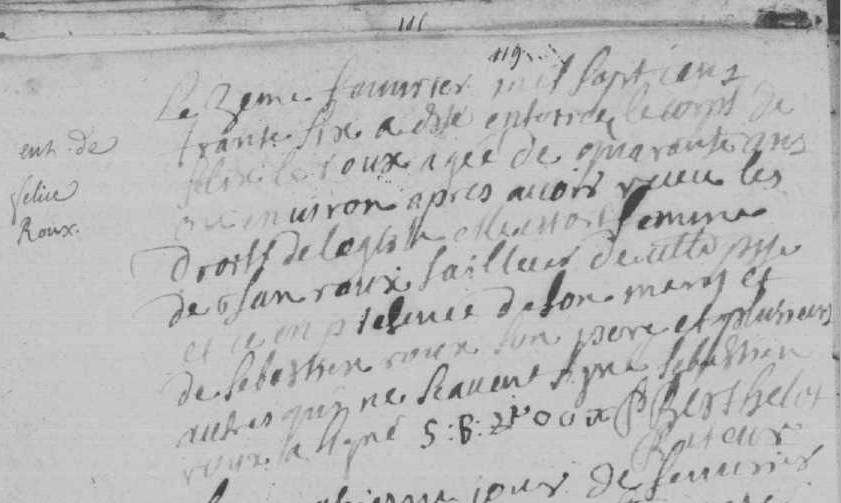 119
ent. de
felice
Roux.
Le 3eme fauvrier mil sapt cens
trante six a esté enterrée le corps de
felix le roux agée de quarante ans
ou environ apres avoir receu les
droits de leglise elle estoit femme
de Jan roux tailleur de cette psse
et ce en presence de son mary et
de sebastien roux son pere et plusieurs
autres qui ne scavent signe sebastien
roux a signé S:B: roux P Berthelot
Recteur
jour de fauvrier